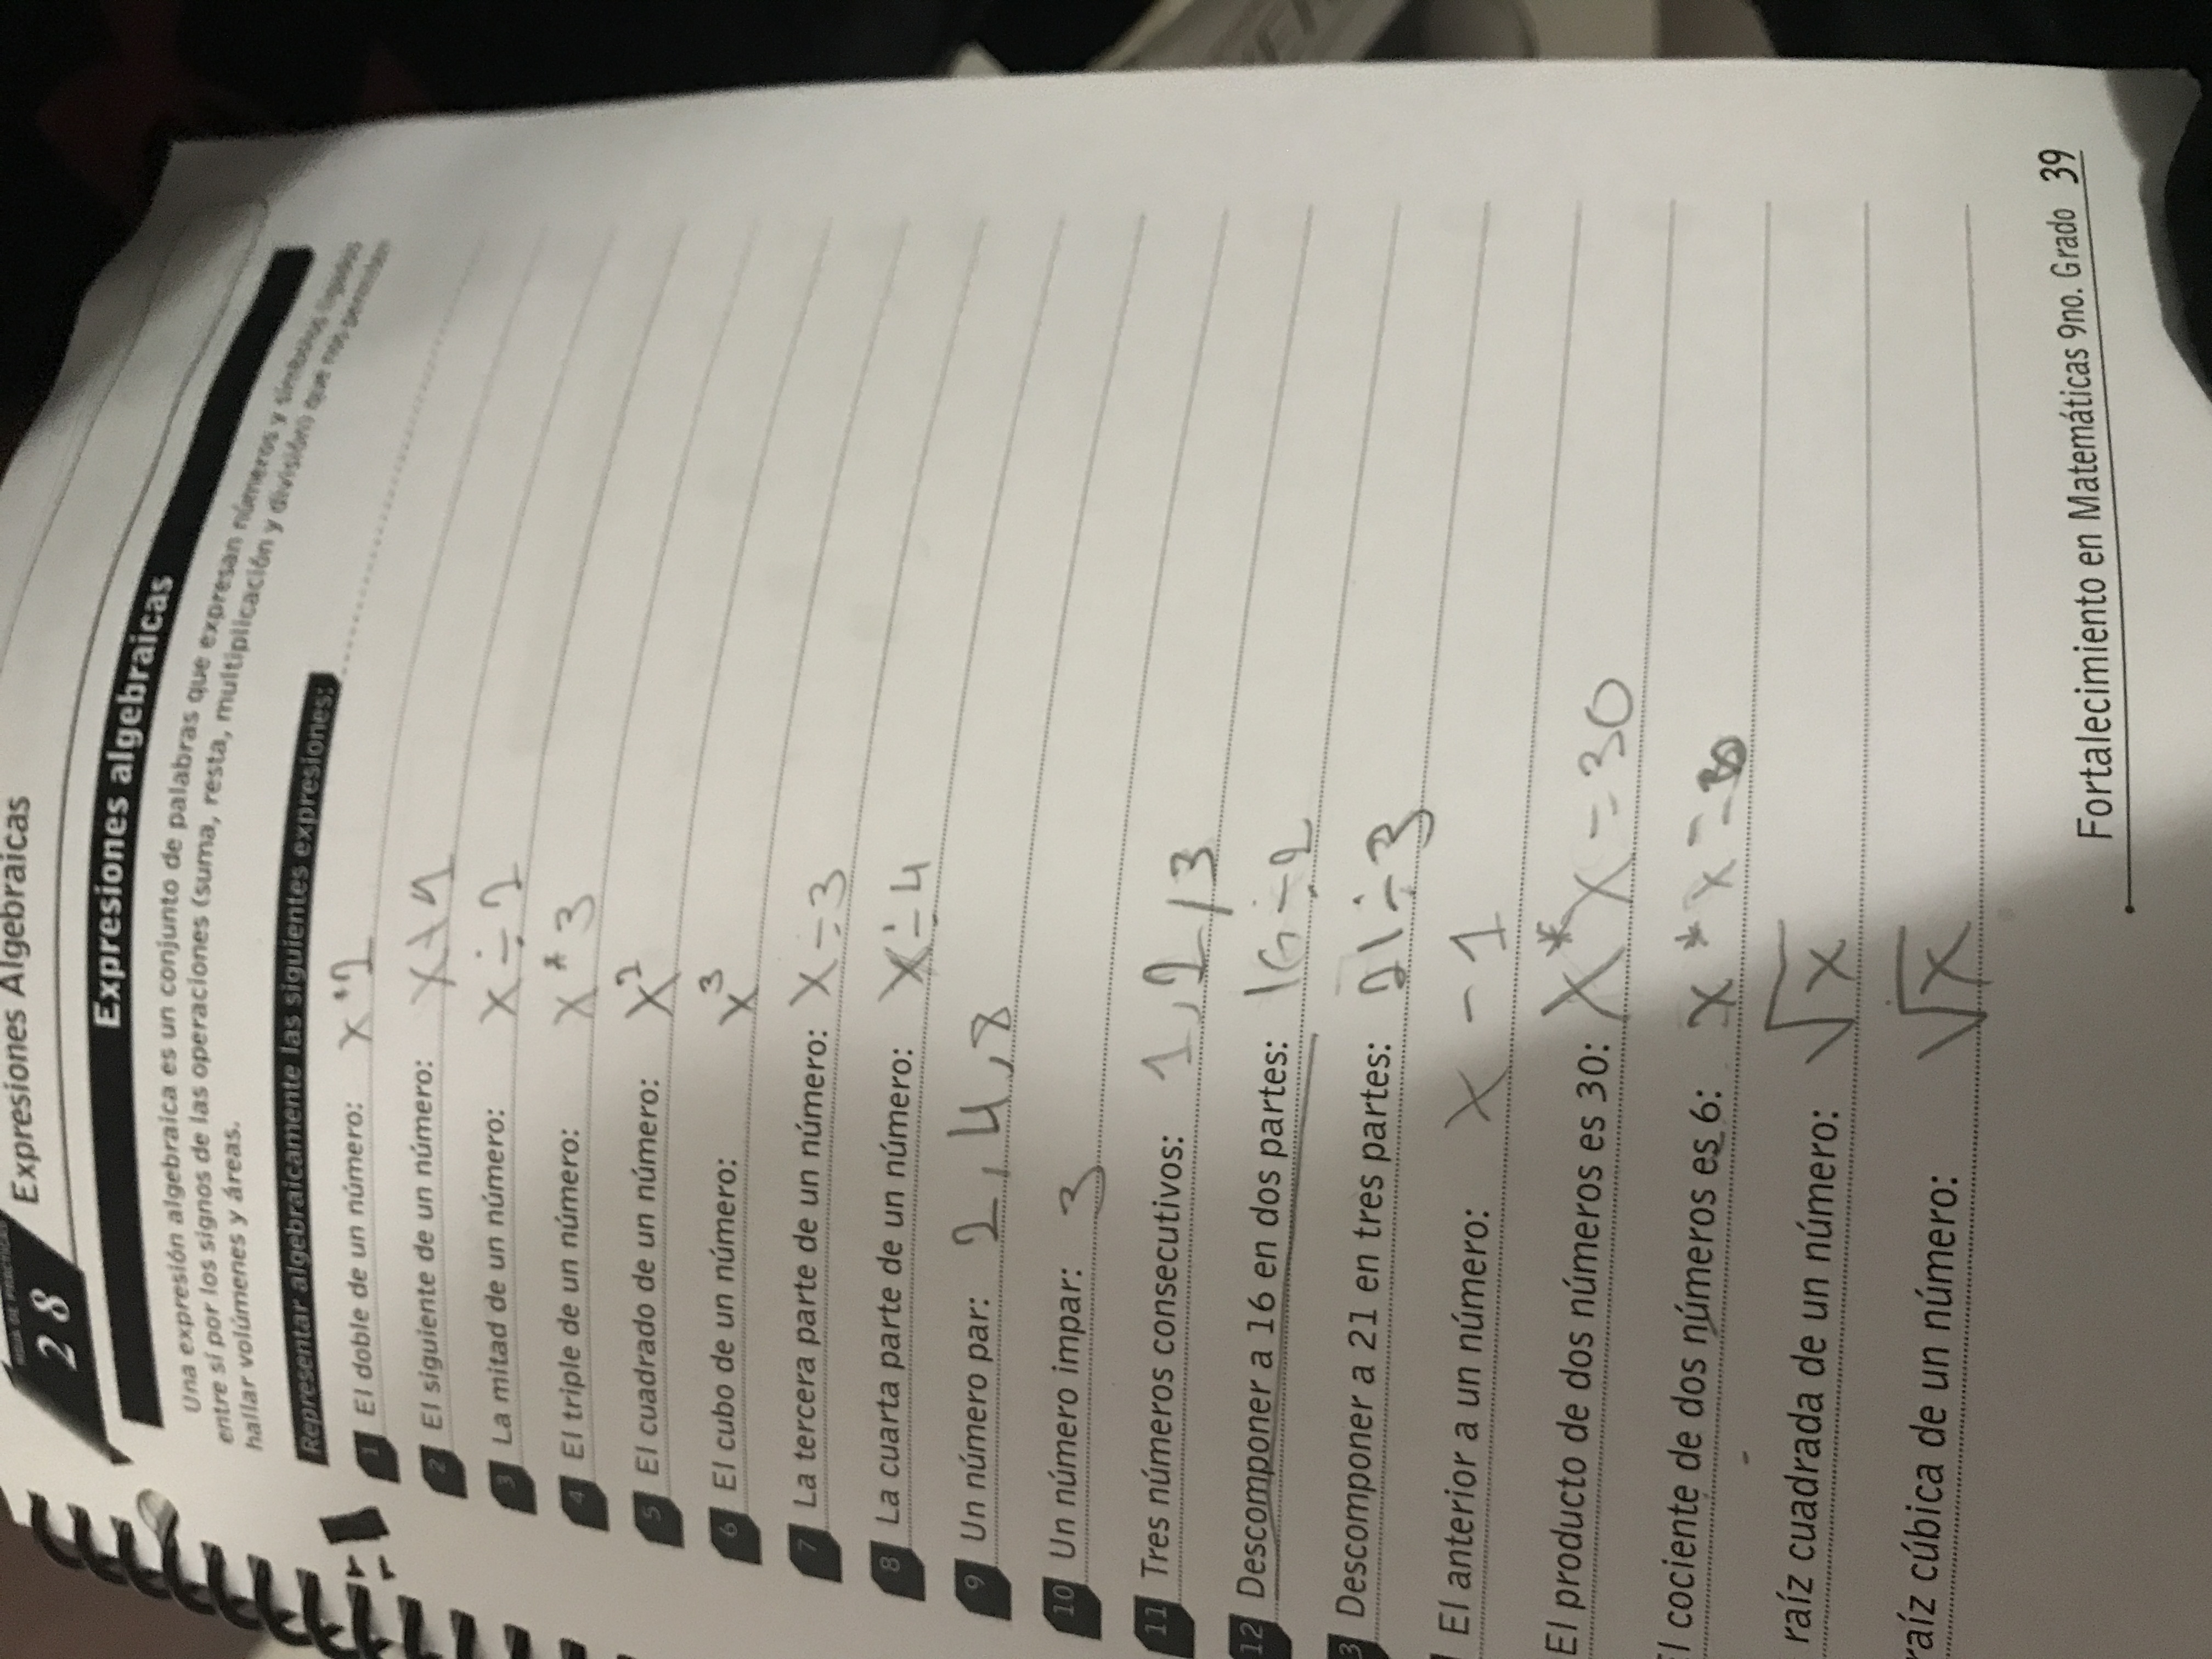 28
Expresiones Algebraicas
Expresiones algebraicas
Una expresión algebraica es un conjunto de palabras que expresan números y símbolos ligados
entre sí por los signos de las operaciones (suma, resta, multiplicación y división) que nos permiten
hallar volúmenes y áreas.
Representar algebraicamente las siguientes expresiones:
1 El doble de un número: x*2
2 El siguiente de un número:
3 La mitad de un número: x÷2
4 El triple de un número: x*3
5 El cuadrado de un número: x²
6 El cubo de un número: x³
7 La tercera parte de un número: x÷3
8 La cuarta parte de un número: x÷4
9 Un número par: 2,4,8
10 Un número impar: 3
11 Tres números consecutivos: 1,2,3
12 Descomponer a 16 en dos partes: 16÷2
3 Descomponer a 21 en tres partes: 21÷3
El anterior a un número: x-1
El producto de dos números es 30: x*x=30
l cociente de dos números es 6: x*x=
raíz cuadrada de un número: √x
raíz cúbica de un número: √x
Fortalecimiento en Matemáticas 9no. Grado 39